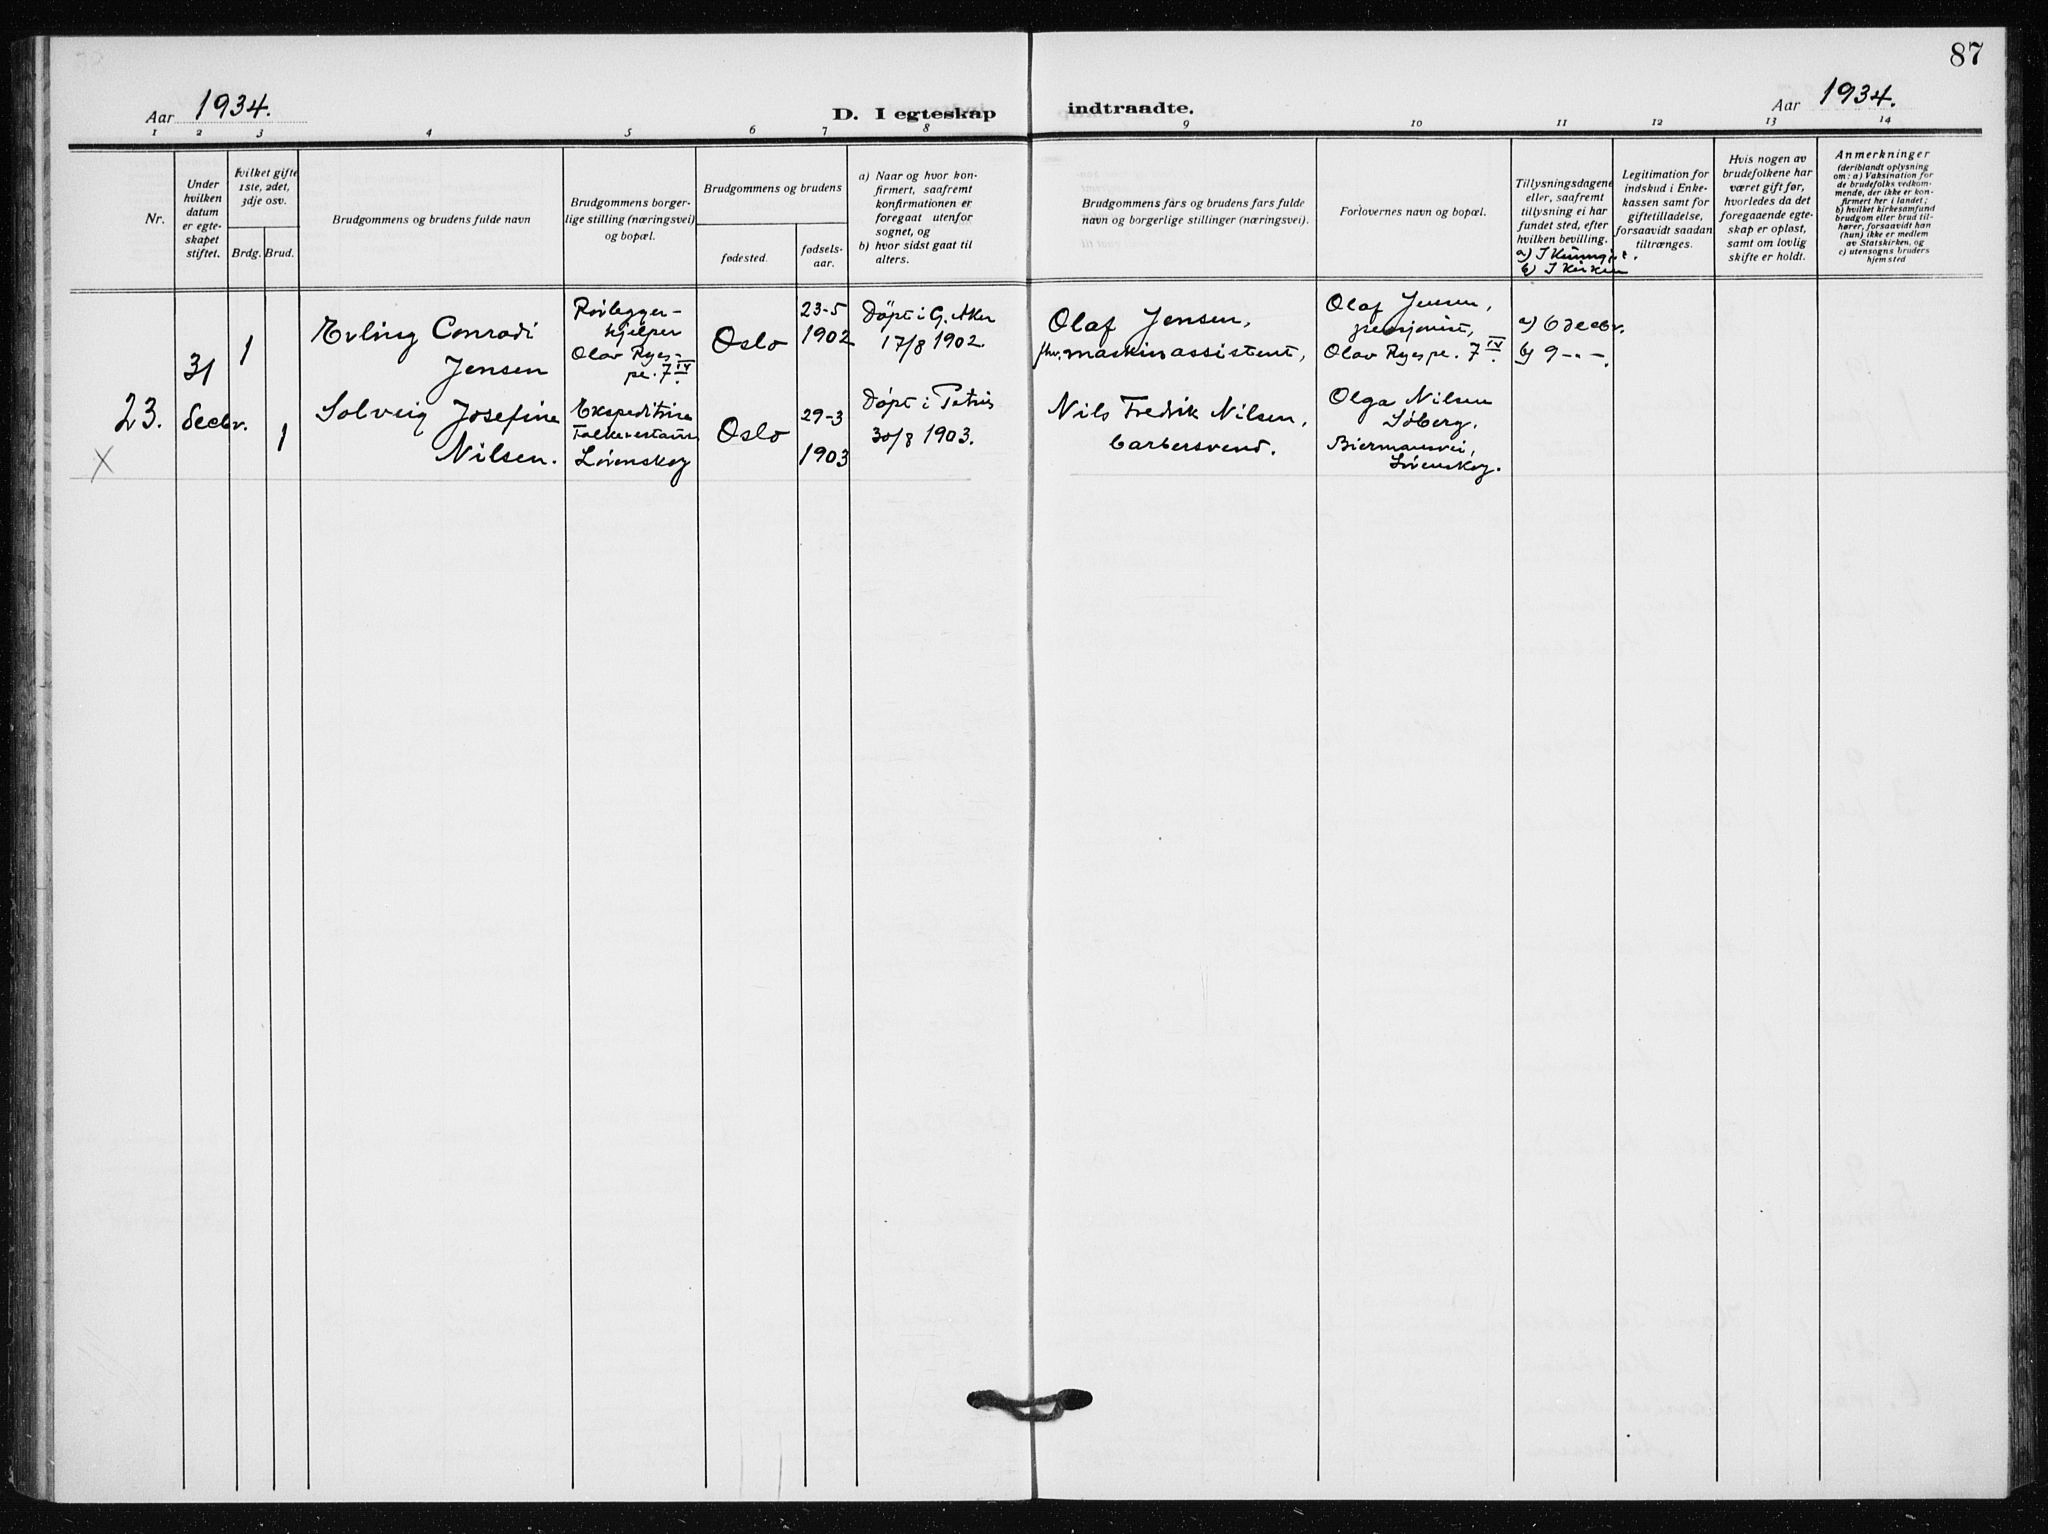 87
Aar 1934.
D. I egteskap indtraadte.
Aar 1934.
1 2 3 4 5 6 7 8 9 10 11 12 13 14
Nr.
Under
hvilken
datum
er egte-
skapet
stiftet.
hvilket gifte
1ste, 2det,
3dje osv.
Brdg. Brud.
Brudgommens og brudens fulde navn
Brudgommens borger-
lige stilling (næringsvei)
og bopæl.
Brudgommens og brudens
fødested.
fødsels-
aar.
a) Naar og hvor kon-
firmert, saafremt
konfirmationen er
foregaat utenfor
sognet, og
b) hvor sidst gaat til
alters.
Brudgommens fars og brudens fars fulde
navn og borgerlige stillinger (næringsvei).
Forlovernes navn og bopæl.
Tillysningsdagene
eller, saafremt
tillysning ei har
fundet sted, efter
hvilken bevilling.
a) I Kunngj.
b) I Kirken
Legitimation for
indskud i Enke-
kassen samt for
giftetilladelse,
forsaavidt saadan
tiltrænges.
Hvis nogen av
brudefolkene har
været gift før,
hvorledes da det
foregaaende egte-
skap er opløst,
samt om lovlig
skifte er holdt.
Anmerkninger
(deriblandt oplysning
om: a) Vaksination for
de brudefolks vedkom-
mende, der ikke er kon-
firmert her i landet;
b) hvilket kirkesamfund
brudgom eller brud til-
hører, forsaavidt han
(hun) ikke er medlem
av Statskirken, og
c) utensogns bruders
hjemsted
23.
X
31
decbr.
1
Erling Conradi
Jensen
Rørlegger-
hjelper
Olav Ryes-
pl. 7 IV.
Oslo
23-5
1902
Døpt i G. Aker
17/8 1902.
Olaf Jensen,
fhv. maskinassistent,
Olaf Jensen,
pensjonist,
Olav Ryespl. 7 IV.
a) 6 decbr.
b) 9 -"-
1
Solveig Josefine
Nilsen.
Ekspeditrise
Lørenskog
Oslo
29-3
1903
Døpt i Petrus
30/8 1903.
Nils Fredrik Nilsen,
barbersvend.
Olga Nilsen
Søberg,
Biermannsvei,
Lørenskog.